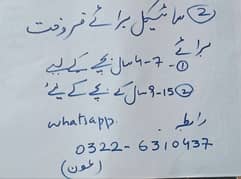 ② سائیکل برائے فروخت
برائے
① - 4-7 سال بچے کے لیے
② 9-15 سال کے بچے کے لیئے
رابطہ
whatsapp
0322-6310437
(عون)